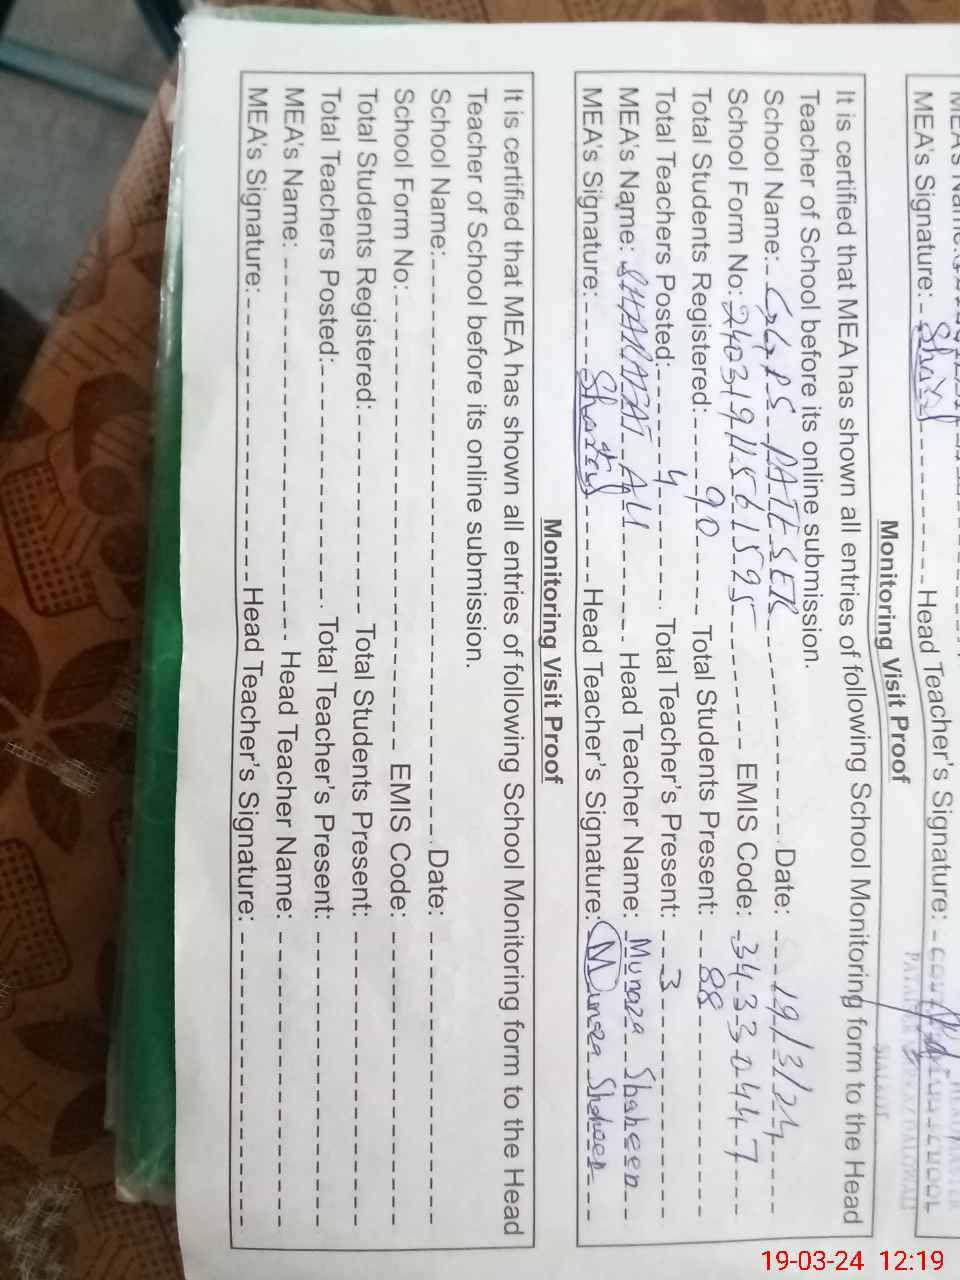 MEA's Signature: Head Teacher's Signature:
Monitoring Visit Proof
It is certified that MEA has shown all entries of following School Monitoring form to the Head
Teacher of School before its online submission.
School Name: GGPS Date: 19/3/24
School Form No: EMIS Code: 34330447
Total Students Registered: 90 Total Students Present: 88
Total Teachers Posted: 4 Total Teacher's Present: 3
MEA's Name: SHARAFAT ALI Head Teacher Name: Munaza Shaheen
MEA's Signature: Head Teacher's Signature: Munaza Shaheen
Monitoring Visit Proof
It is certified that MEA has shown all entries of following School Monitoring form to the Head
Teacher of School before its online submission.
School Name: Date:
School Form No: EMIS Code:
Total Students Registered: Total Students Present:
Total Teachers Posted: Total Teacher's Present:
MEA's Name: Head Teacher Name:
MEA's Signature: Head Teacher's Signature:
19-03-24 12:19